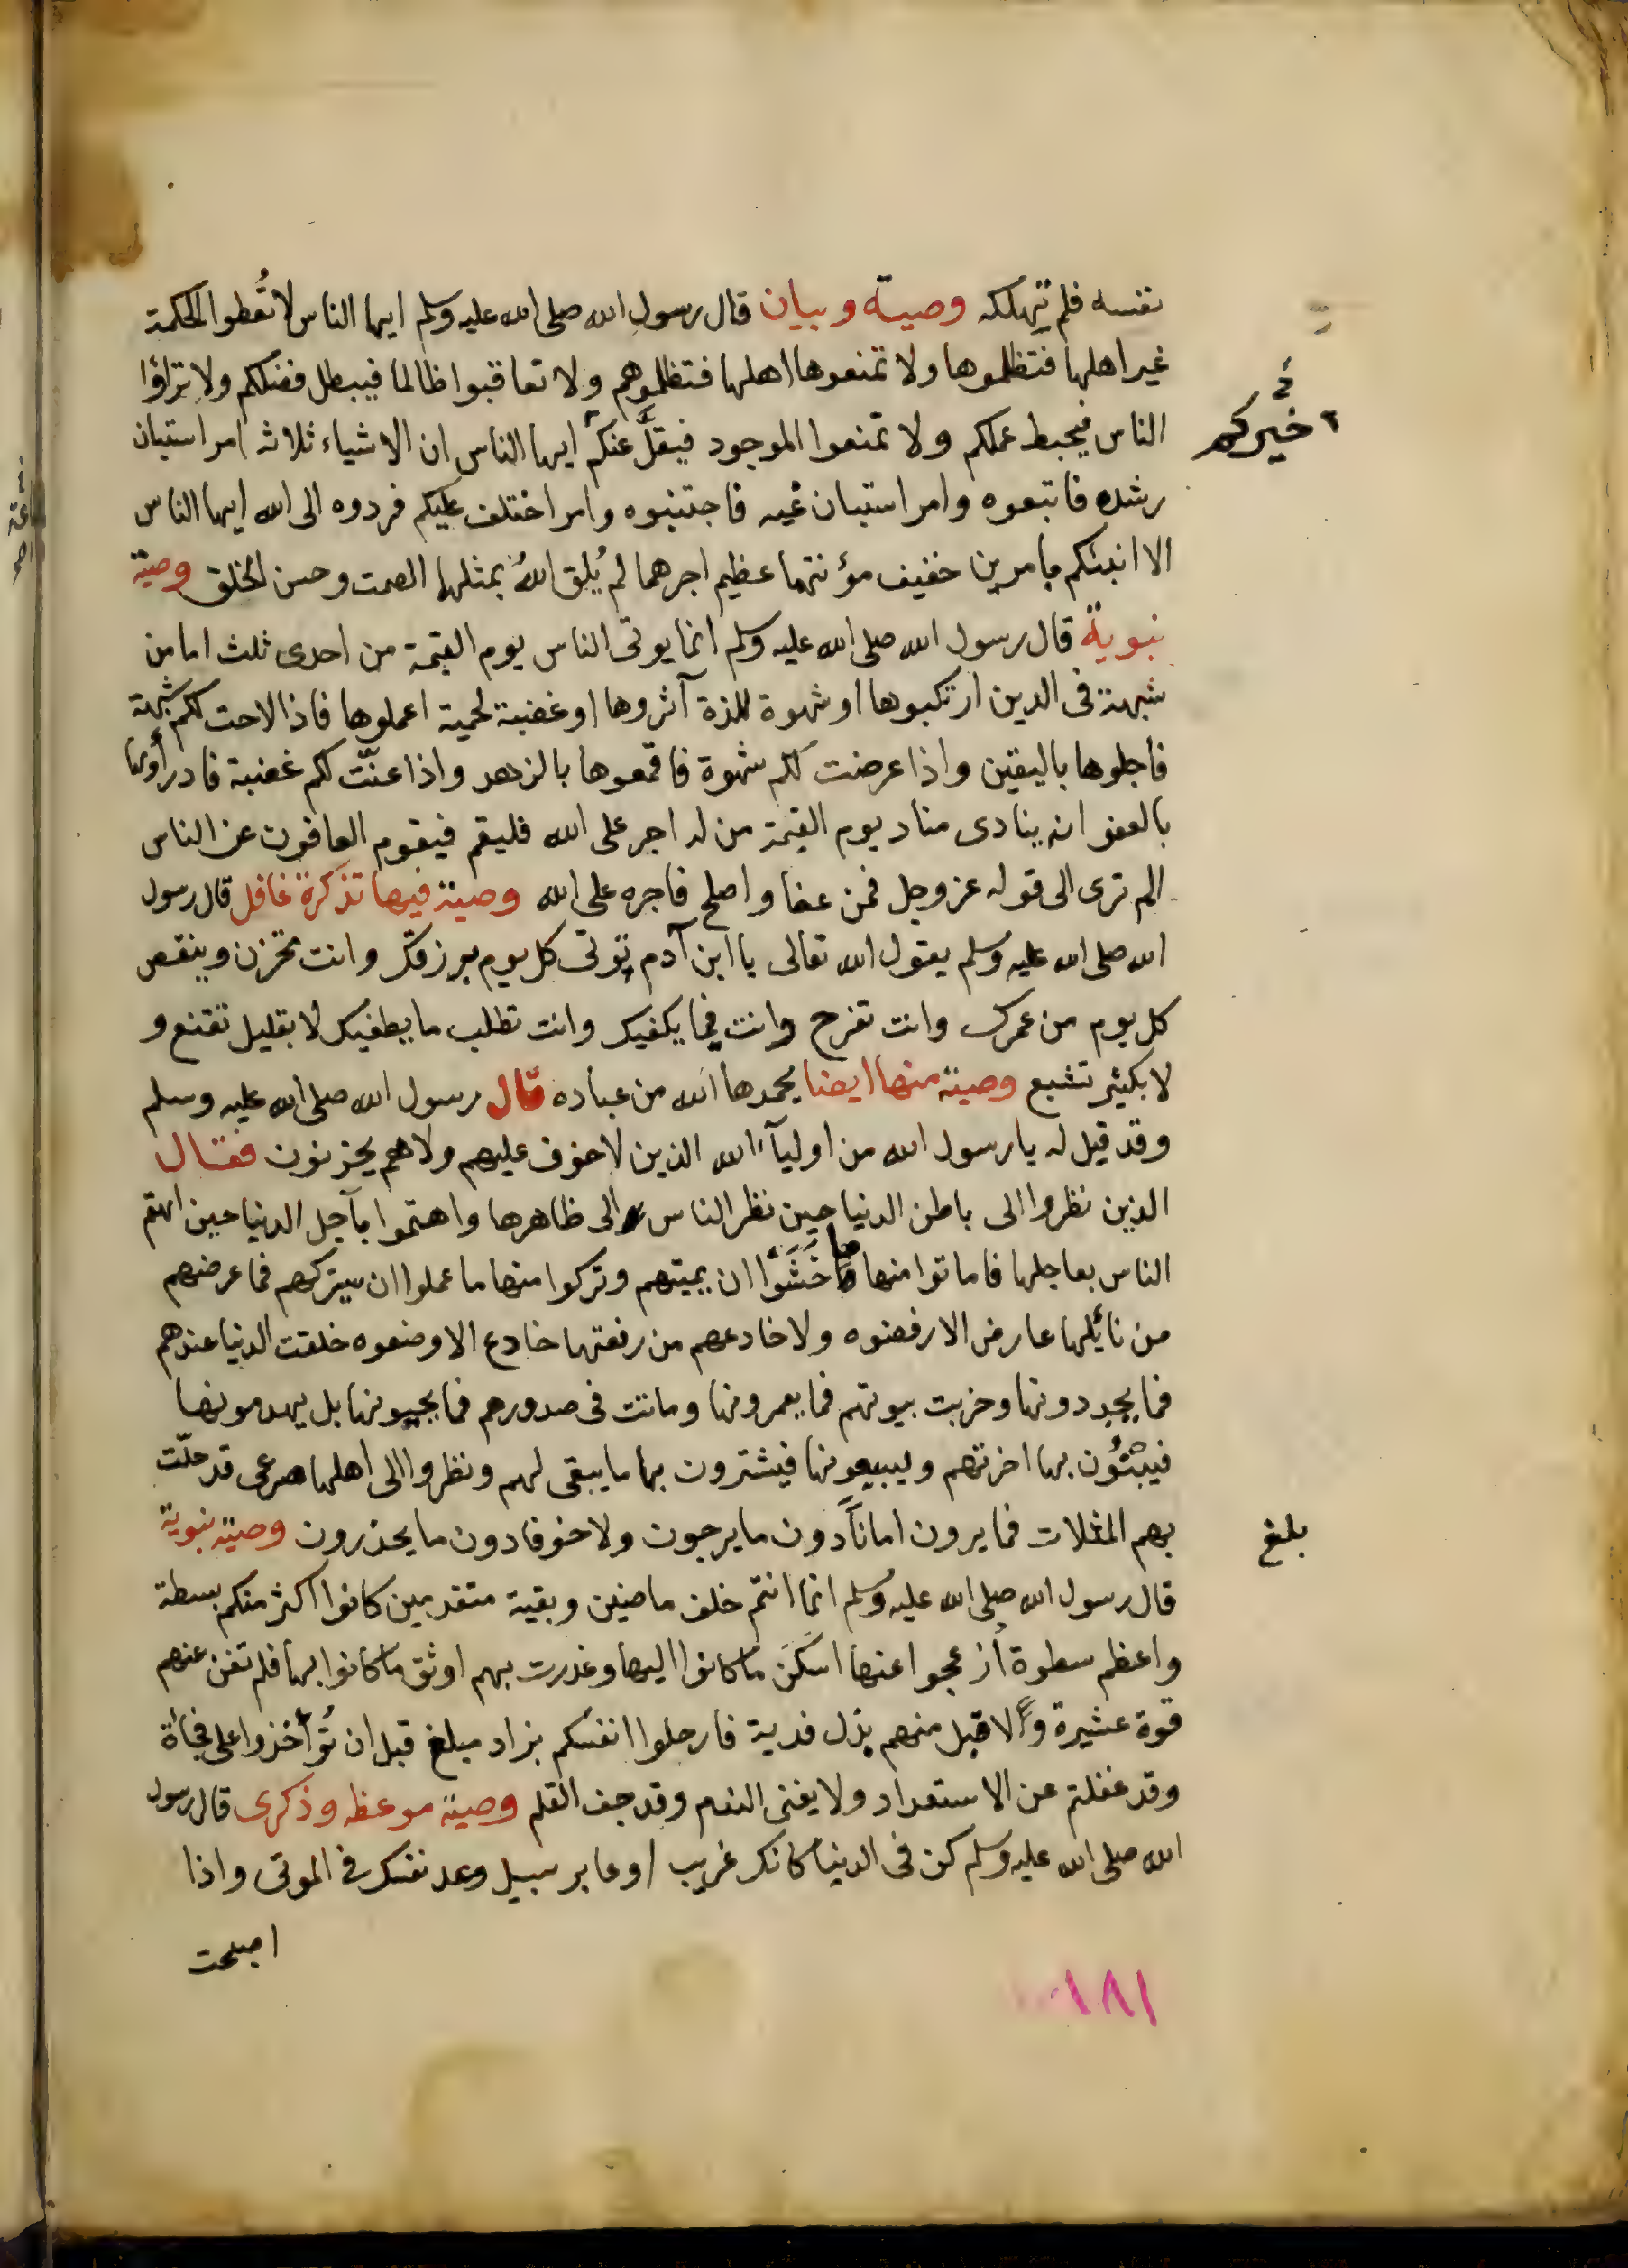 نفسه فلم تهلكه وصية وبيان قال رسول الله صلى الله عليه وسلم ايها الناس لا تُعطوا الحكمة
غير اهلها فتظلموها ولا تمنعوها اهلها فتظلموهم ولا تعاقبوا ظالما فيبطل فضلكم ولا تراؤا
خيركم
الناس فيحبط عملكم ولا تمنعوا الموجود فيقلّ عنكم ايها الناس ان الاشياء ثلاثة امر استبان
رشده فاتبعوه وامر استبان غيه فاجتنبوه وامر اختلف عليكم فردوه الى الله ايها الناس
الا انبئكم بامرين خفيف مؤنتهما عظيم اجرهما لم يُلق اللهُ بمثلهما الصمت وحسن الخلق وصية
نبوية قال رسول الله صلى الله عليه وسلم انما يوتى الناس يوم القيمة من احدى ثلث اما من
شبهة فى الدين ارتكبوها او شهوة للذة آثروها او غضبة لحمية اعملوها فاذا لاحت لكم شبهة
فاجلوها باليقين واذا عرضت لكم شهوة فاقمعوها بالزهد واذا عنّت لكم غضبة فادرأوها
بالعفو انه ينادى مناد يوم القيمة من له اجر على الله فليقم فيقوم العافون عن الناس
الم ترى الى قوله عز وجل فمن عفا واصلح فاجره على الله وصية فيها تذكرة غافل قال رسول
الله صلى الله عليه وسلم يقول الله تعالى يا ابن آدم توتى كل يوم برزقك وانت تحزن وينقص
كل يوم من عمرك وانت تفرح وانت فيما يكفيك وانت تطلب ما يطغيك لا بقليل تقنع و
لا بكثير تشبع وصية منها ايضا يحمدها الله من عباده قال رسول الله صلى الله عليه وسلم
وقد قيل له يا رسول الله من اوليآء الله الذين لا خوف عليهم ولا هم يحزنون فقال
الذين نظروا الى باطن الدنيا حين نظر الناس الى ظاهرها واهتموا بآجل الدنيا حين اهتم
الناس بعاجلها فاماتوا منها ما خَشَوْا ان يميتهم وتركوا منها ما عملوا ان سيتركهم فما عرضهم
من نائلها عارض الا رفضوه ولا خادعهم من رفعتها خادع الا وضعوه خلقت الدنيا عندهم
فما يجددونها وخربت بيوتهم فما يعمرونها وماتت فى صدورهم فما يحيونها بل يهدمونها
فيبنُون بها اخرتهم ويبيعونها فيشترون بها ما يبقى لهم ونظروا الى اهلها صرعى قد حلّت
بهم المثلات فما يرون امانا دون ما يرجون ولا خوفا دون ما يحذرون وصية نبوية
بلغ
قال رسول الله صلى الله عليه وسلم انما انتم خلف ماضين وبقية متقدمين كانوا اكثر منكم بسطة
واعظم سطوة ازعجوا عنها اسكَنَ ما كانوا اليها وغدرت بهم اوثق ما كانوا بها فلم تغن عنهم
قوة عشيرة ولا قبل منهم بذل فدية فارحلوا انفسكم بزاد مبلغ قبل ان تُؤاخذوا على فجأة
وقد غفلتم عن الاستعداد ولا يغنى الندم وقد جف القلم وصية موعظه وذكرى قال رسول
الله صلى الله عليه وسلم كن فى الدنيا كانك غريب او عابر سبيل وعد نفسك فى الموتى واذا
اصبحت
١٨١